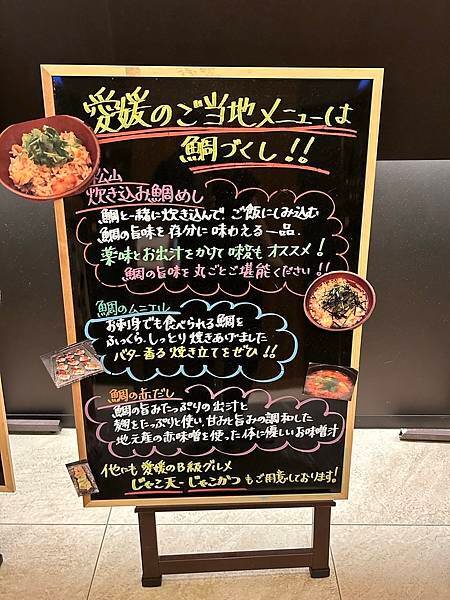 愛媛のご当地メニューは
鯛づくし!!
松山
炊き込み鯛めし
鯛と一緒に炊き込んで ご飯にしみ込む
鯛の旨味を存分に味わえる一品.
薬味とお出汁をかけて味変もオススメ!
鯛の旨味を丸ごとご堪能ください!
鯛のムニエル
お刺身でも食べられる鯛を
ふっくら、しっとり焼きあげました
バター香る焼き立てをぜひ!!
鯛の赤だし
鯛の旨みたっぷりの出汁と
麹をたっぷりと使い甘みと旨みの調和した
地元産の赤味噌を使った体に優しいお味噌汁
他にも愛媛のB級グルメ
じゃこ天・じゃこかつもご用意しております!